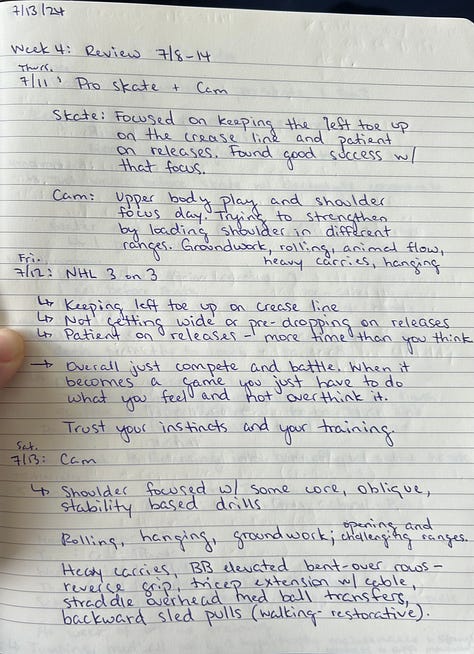 7/13/24
Week 4: Review 7/8-14
Thurs.
7/11: Pro skate + Cam
Skate: Focused on keeping the left toe up
on the crease line and patient
on releases. Found good success w/
that focus.
Cam: Upper body play and shoulder
focus day. Trying to strengthen
by loading shoulder in different
ranges. Groundwork, rolling, animal flow,
heavy carries, hanging
Fri.
7/12: NHL 3 on 3
↳ Keeping left toe up on crease line
↳ Not getting wide or pre-dropping on releases
↳ Patient on releases - more time than you think
→ Overall just compete and battle. When it
becomes a game you just have to do
what you feel and not overthink it.
Trust your instincts and your training.
Sat.
7/13: Cam
↳ Shoulder focused w/ some core, oblique,
stability based drills
Rolling, hanging, groundwork; opening and
challenging ranges.
Heavy carries, BB elevated bent-over rows -
reverse grip, tricep extension w/ cable,
straddle overhead med ball transfers,
backward sled pulls (walking- restorative).